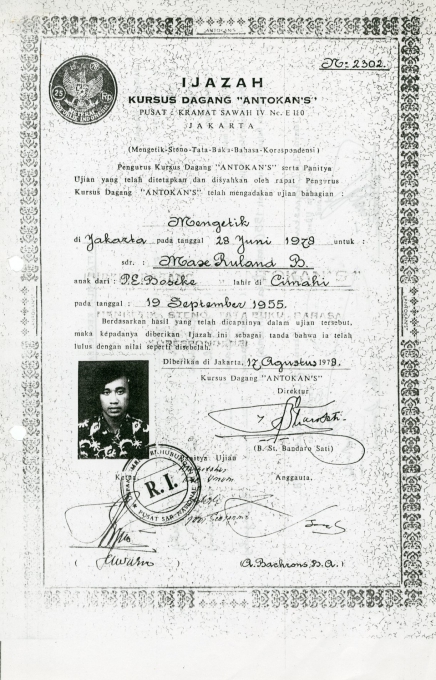 No: 2302.
25 Rp
IJAZAH
KURSUS DAGANG "ANTOKAN'S"
PUSAT : KRAMAT SAWAH IV No. E 110
JAKARTA
(Mengetik-Steno-Tata-Buku-Bahasa-Korespondensi)
Pengurus Kursus Dagang "ANTOKAN'S" serta Panitya
Ujian yang telah ditetapkan dan disyahkan oleh rapat Pengurus
Kursus Dagang "ANTOKAN'S" telah mengadakan ujian bahagian :
Mengetik
di Jakarta pada tanggal 28 Juni 1978 untuk :
sdr. : Maxe Ruland B.
anak dari : P.E. Boseke lahir di Cimahi
pada tanggal : 19 September 1955.
Berdasarkan hasil yang telah dicapainya dalam ujian tersebut,
maka kepadanya diberikan Ijazah ini sebagai tanda bahwa ia telah
lulus dengan nilai seperti disebelah.
Diberikan di Jakarta, 17 Agustus 1978.
Kursus Dagang "ANTOKAN'S"
Direktur
(B. St. Bandaro Sati)
Panitya Ujian
Ketua
Anggauta,
R.I.
PUSAT
( )
(A. Bachrons, B.A.)